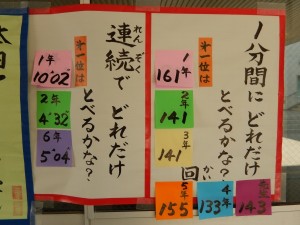 1分間にどれだけ
とべるかな?
回
かい
第一位は
1年
161
2年
141
3年
141
4年
133
5年
155
143
連続でどれだけ
れんぞく
とべるかな?
第一位は
1年
10'02"
2年
4'32"
6年
5'04"